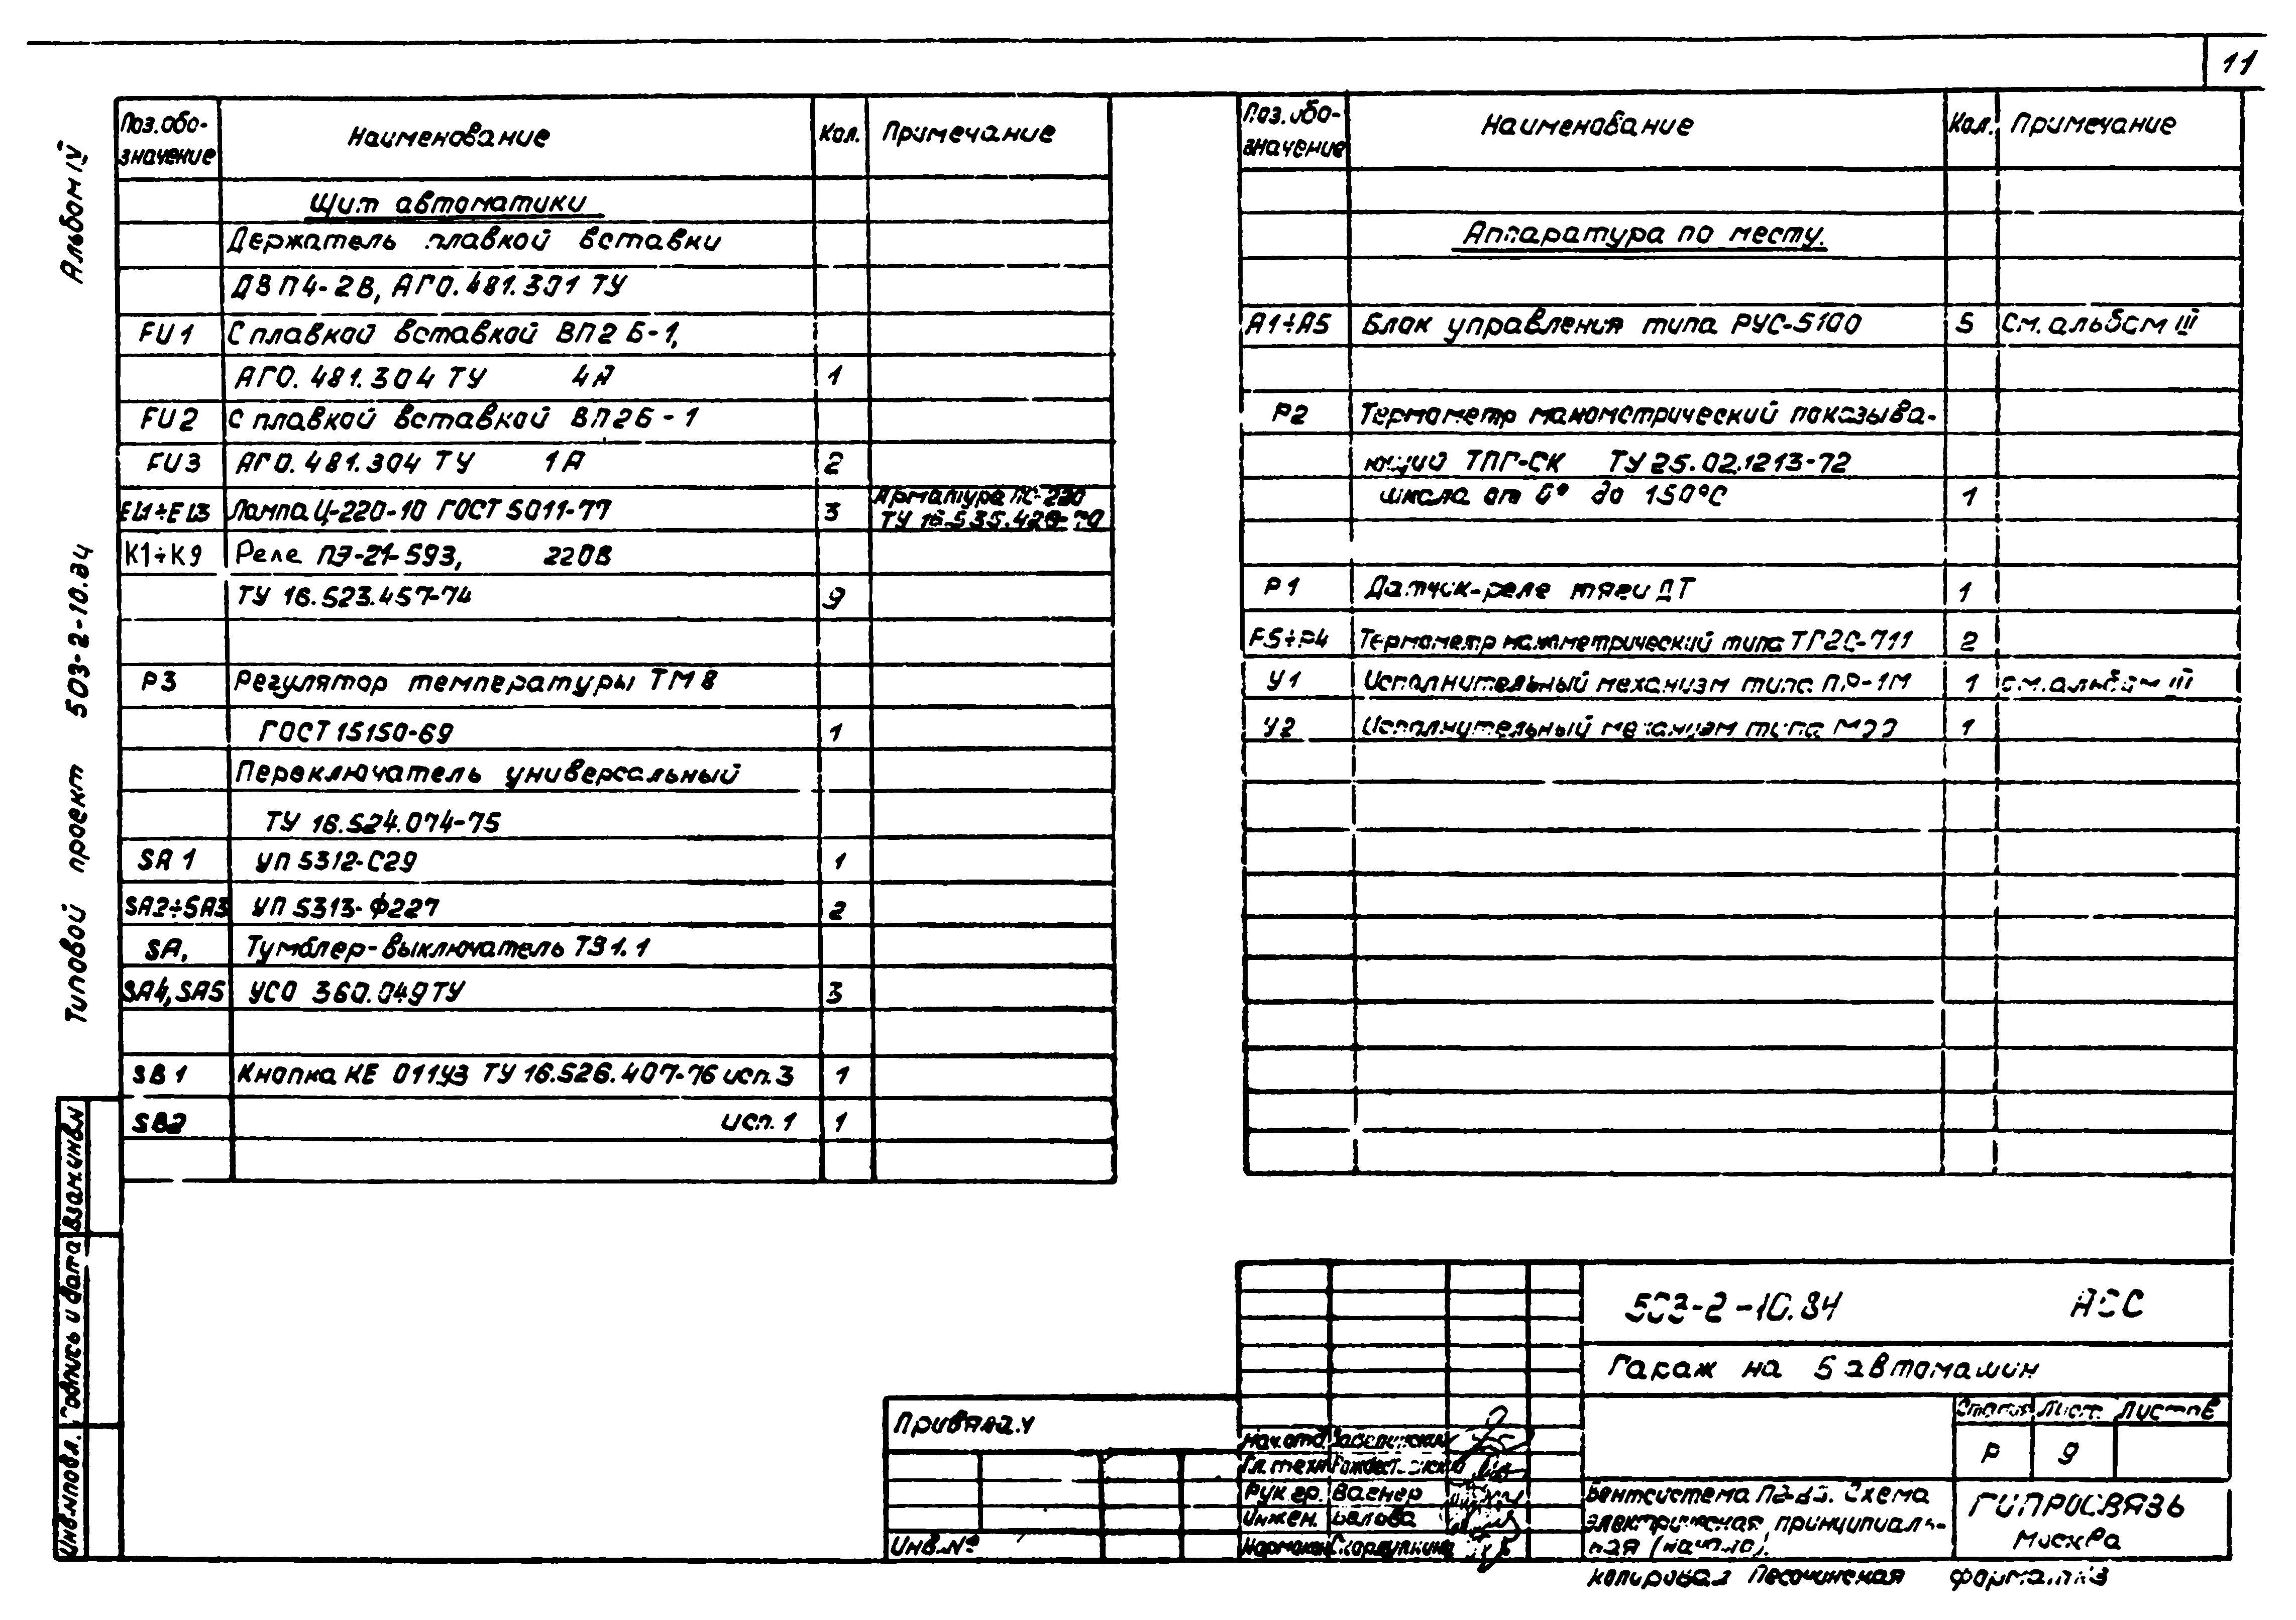 11
Альбом IV
Типовой проект 503-2-10.84
Поз. обо- Наименование Кол. Примечание
значение
Щит автоматики
Держатель плавкой вставки
ДВП4-2В, АГО.481.301 ТУ
FU1 С плавкой вставкой ВП2Б-1,
АГО.481.304 ТУ 4А 1
FU2 С плавкой вставкой ВП2Б-1
FU3 АГО.481.304 ТУ 1А 2
EL1÷EL3 Лампа Ц-220-10 ГОСТ 5011-77 3 Арматура ЛС-220
ТУ 16.535.
К1÷К9 Реле ПЭ-21-593, 220В
ТУ 16.523.457-74 9
Р3 Регулятор температуры ТМ8
ГОСТ 15150-69 1
Переключатель универсальный
ТУ 16.524.074-75
SA1 УП 5312-С29 1
SA2÷SA3 УП 5313-Ф227 2
SA, Тумблер-выключатель ТВ1.1
SA4, SA5 УСО 360.049 ТУ 3
SB1 Кнопка КЕ 011У3 ТУ 16.526.407-76 исп.3 1
SB2 исп.1 1
Поз. обо- Наименование Кол. Примечание
значение
Аппаратура по месту.
А1÷А5 Блок управления типа РУС-5100 5 См. альбом III
Р2 Термометр манометрический показыва-
ющий ТПГ-СК ТУ 25.02.1213-72
шкала от 0° до 150°С 1
Р1 Датчик-реле тяги ДТ 1
Термометр манометрический типа ТГ2С-711 2
У1 Исполнительный механизм типа ПР-1М 1 см. альбом III
У2 Исполнительный механизм типа 1
503-2-10.84
Гараж на 5 автомашин
Стадия Лист Листов
Р 9
Вентсистема Схема
электрическая принципиаль-
ная (начало).
ГИПРОСВЯЗЬ
Москва
Нач.отд.
Гл.техн.
Рук.гр. Вагнер
Инжен. Белова
Привязал
Инв.№
Взам.инв.№
Подпись и дата
Инв.№подл.
копировал Песочинская формат А3